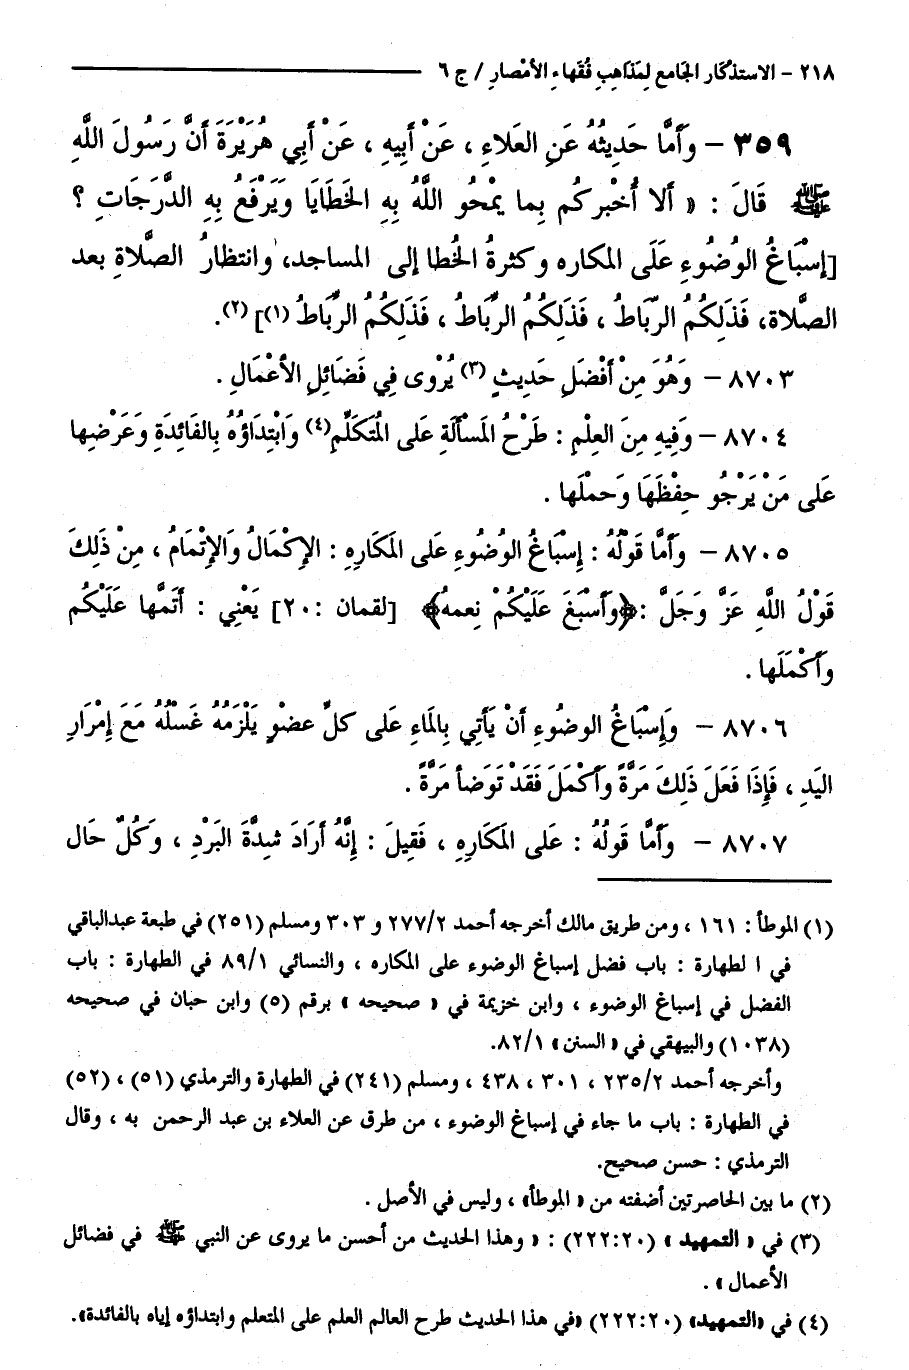 ٢١٨ - الاستذكار الجامع لِمَذاهِبِ فُقَهاءِ الأمْصارِ / ج ٦
٣٥٩ - وَأَمَّا حَدِيثُهُ عَنِ العَلاءِ ، عَنْ أَبِيهِ ، عَنْ أَبِي هُرَيْرَةَ أَنَّ رَسُولَ اللَّهِ
ﷺ قَالَ : « أَلا أُخْبِرُكُم بِما يَمْحُو اللَّهُ بِهِ الخَطَايَا وَيَرْفَعُ بِهِ الدَّرَجَاتِ ؟
[إسْبَاغُ الوُضُوءِ عَلَى المكاره وكثرةُ الخُطا إلى المساجد، وانتظارُ الصَّلاةِ بعد
الصَّلاة، فَذَلِكُمُ الرِّبَاطُ ، فَذَلِكُمُ الرِّبَاطُ ، فَذَلِكُمُ الرِّبَاطُ (١)] (٢).
٨٧٠٣ - وَهُوَ مِنْ أَفْضَلِ حَدِيثٍ (٣) يُرْوى فِي فَضَائِلِ الأعْمَالِ .
٨٧٠٤ - وَفِيهِ مِنَ العِلْمِ : طَرْحُ المَسْأَلَةِ عَلى المُتَكَلِّمِ (٤) وَابْتِداؤُهُ بِالفَائِدَةِ وَعَرْضِها
عَلى مَنْ يَرْجُو حِفْظَهَا وَحملَها .
٨٧٠٥ - وَأَمَّا قَوْلُهُ : إِسْبَاغُ الوُضُوءِ عَلى المَكَارِهِ : الإِكْمَالُ وَالإِتْمَامُ ، مِنْ ذَلِكَ
قَوْلُ اللَّهِ عَزَّ وَجَلَّ : ﴿وَأَسْبَغَ عَلَيْكُمْ نِعمهُ﴾ [لقمان : ٢٠] يَعْنِي : أَتَمَّها عَلَيْكُم
وَأَكْمَلَها .
٨٧٠٦ - وَإِسْبَاغُ الوضُوءِ أَنْ يَأتِي بِالمَاءِ عَلى كلِّ عضْوٍ يَلْزَمُهُ غَسْلُهُ مَعَ إِمْرَارِ
اليَدِ ، فَإِذَا فَعَلَ ذَلِكَ مَرَّةً وَأَكْمَلَ فَقَدْ تَوَضأ مَرَّةً .
٨٧٠٧ - وَأَمَّا قَولُهُ : عَلى المَكَارِهِ ، فَقِيلَ : إِنَّهُ أَرَادَ شِدَّةَ البَرْدِ ، وَكُلّ حَال
(١) الموطأ : ١٦١ ، ومن طريق مالك أخرجه أحمد ٢/٢٧٧ و ٣٠٣ ومسلم (٢٥١) في طبعة عبدالباقي
في ا لطهارة : باب فضل إسباغ الوضوء على المكاره ، والنسائي ١/ ٨٩ في الطهارة : باب
الفضل في إسباغ الوضوء ، وابن خزيمة في « صحيحه » برقم (٥) وابن حبان في صحيحه
(١٠٣٨) والبيهقي في « السنن» ١/ ٨٢.
وأخرجه أحمد ٢/ ٢٣٥ ، ٣٠١ ، ٤٣٨ ، ومسلم (٢٤١) في الطهارة والترمذي (٥١) ، (٥٢)
في الطهارة : باب ما جاء في إسباغ الوضوء ، من طرق عن العلاء بن عبد الرحمن به ، وقال
الترمذي : حسن صحيح.
(٢) ما بين الحاصرتين أضفته من « الموطأ» ، وليس في الأصل .
(٣) في « التمهيد » (٢٢٢:٢٠) : « وهذا الحديث من أحسن ما يروى عن النبي ﷺ في فضائل
الأعمال » .
(٤) في «التمهيد» (٢٢٢:٢٠) «في هذا الحديث طرح العالم العلم على المتعلم وابتداؤه إياه بالفائدة».